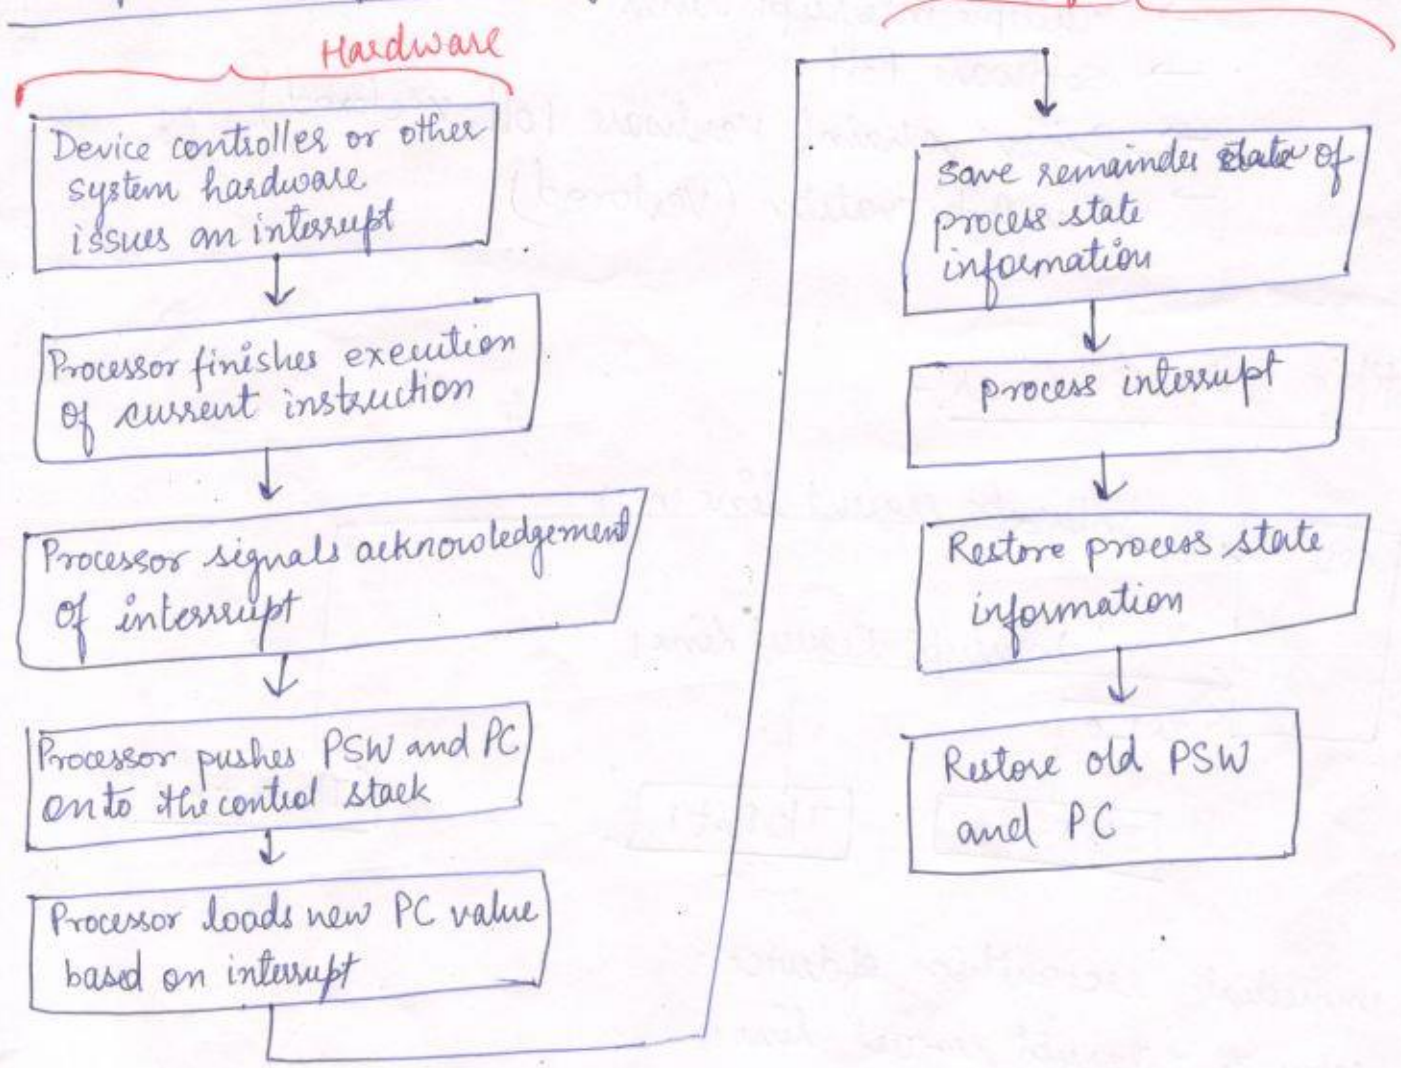 Hardware
Device controller or other
system hardware
issues an interrupt
Processor finishes execution
of current instruction
Processor signals acknowledgement
of interrupt
Processor pushes PSW and PC
onto the control stack
Processor loads new PC value
based on interrupt
Save remainder of
process state
information
process interrupt
Restore process state
information
Restore old PSW
and PC